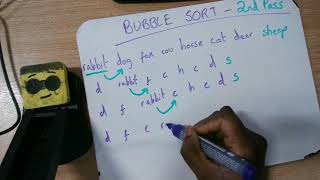 BUBBLE SORT - 2nd Pass
rabbit dog fox cow horse cat deer sheep
d rabbit f c h c d s
d f rabbit c h c d s
d f c r